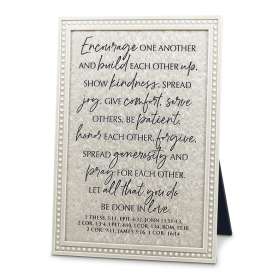 Encourage ONE ANOTHER
AND build EACH OTHER up,
SHOW kindness, SPREAD
joy, GIVE comfort, serve
OTHERS, BE patient,
honor EACH OTHER, forgive,
SPREAD generosity AND
pray FOR EACH OTHER.
LET all that you do
BE DONE IN love.
1 THESS. 5:11, EPH. 4:32, JOHN 15:11-13,
2 COR. 1:3-4, 1 PET. 4:10, 1 COR. 13:4, ROM. 12:10
2 COR. 9:11, JAMES 5:16, 1 COR. 16:14